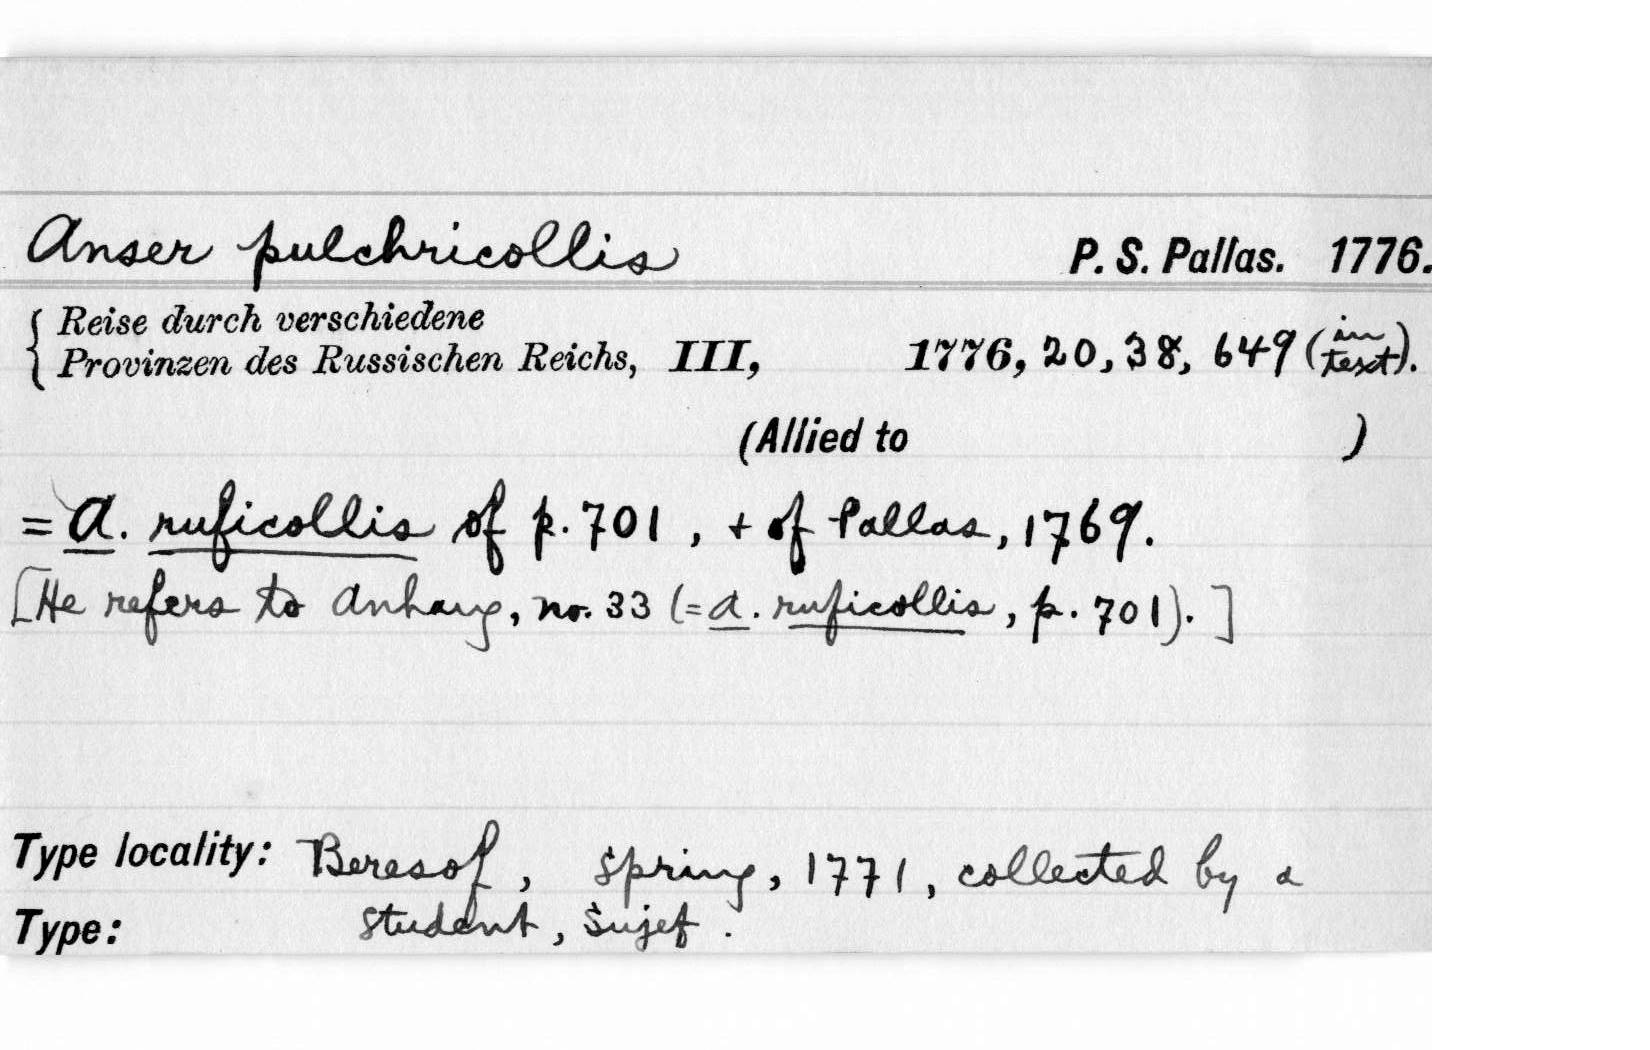 Anser pulchricollis P. S. Pallas. 1776.
{ Reise durch verschiedene
Provinzen des Russischen Reichs, III, 1776, 20, 38, 649 (in text).
(Allied to )
= A. ruficollis of p. 701, + of Pallas, 1769.
[He refers to Anhang, no. 33 (= A. ruficollis, p. 701). ]
Type locality: Beresof, Spring, 1771, collected by a
Type: student, Sujef.